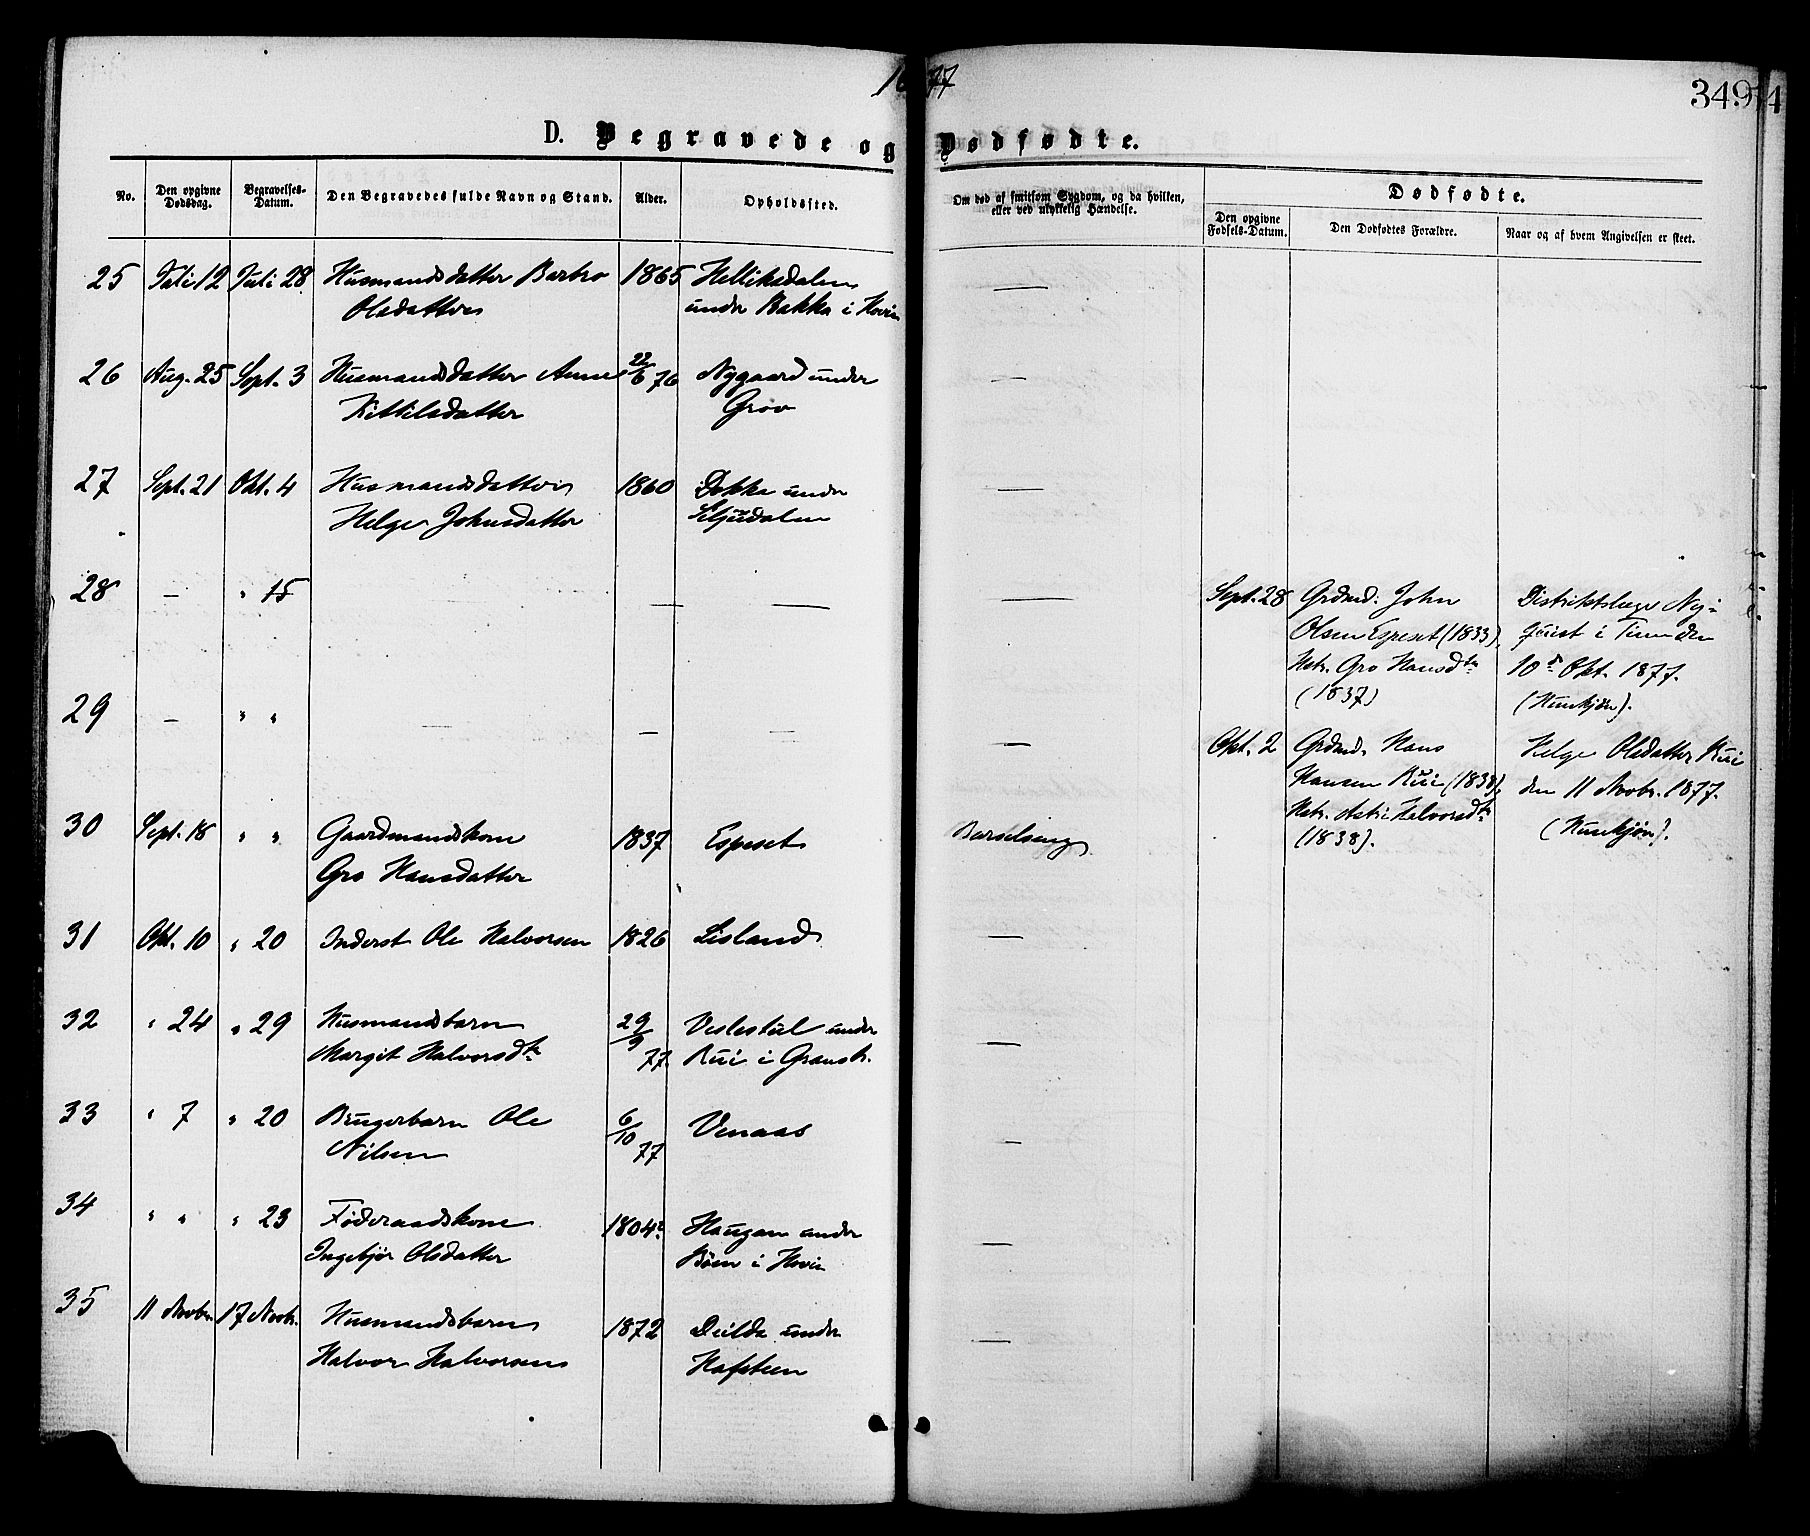 1877
349
D. Begravede og Dødfødte.
No.
Den opgivne Dødsdag.
Begravelses-Datum.
Den Begravedes fulde Navn og Stand.
Alder.
Opholdssted.
Om død af smitsom Sygdom, og da hvilken, eller ved ulykkelig Hændelse.
Dødfødte.
Den opgivne Fødsels-Datum.
Den Dødfødtes Forældre.
Naar og af hvem Angivelsen er skeet.
25 Juli 12 Juli 28 Husmandsdatter Barbro 1865 Helliksdalen —
Olsdatter under Bakka i Hovin
26 Aug. 25 Sept. 3 Husmandsdatter Anne 22/6 76 Nygaard under —
Kittilsdatter Grov
27 Sept. 21 Okt. 4 Husmandsdatter 1860 Dokka under —
Helge Johnsdatter Seljudalen
28 — " 15 — — — — Sept. 28 Grdmd. John Distriktslæge Ny-
Olsen Espeset (1833), quist i Tinn den
Hstr. Gro Hansdtr 10de Okt. 1877.
(1837) (Hunkjøn).
29 — " " — — — — Okt. 2 Grdmd. Hans Helge Olsdatter Rui
Hansen Rui (1838), den 11 Novbr. 1877.
Hstr. Astri Halvorsdtr (Hunkjøn).
(1838).
30 Sept. 18 " " Gaardmandskone 1837 Espeset Barselseng
Gro Hansdatter
31 Okt. 10 " 20 Inderst Ole Halvorsen 1826 Lisland —
32 " 24 " 29 Husmandsbarn 29/9 77. Veslestul under —
Margit Halvorsdtr Rui i Gransh.
33 " 7 " 20 Brugerbarn Ole 6/10 77 Venaas —
Nilsen
34 " " " 23 Føderaadskone 1804 Haugan under —
Ingebjør Olsdatter Bøen i Hovin
35 11 Novbr. 17 Novbr. Husmandsbarn 1872 Deilda under —
Halvor Halvorsen Hafsteen